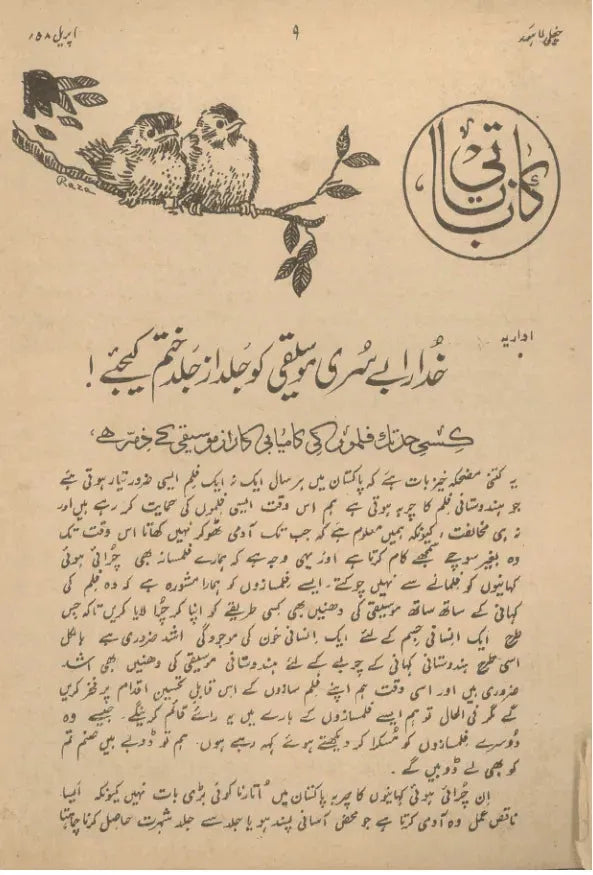 اپریل ۵۸ء
۹
Raza
اداریہ
خُدارا بے سُری موسیقی کو جلد از جلد ختم کیجئے !
کسی حد تک فلموں کی کامیابی کا راز موسیقی کے ذمّہ ھے،
یہ کتنی مضحکہ خیز بات ہے کہ پاکستان میں ہر سال ایک نہ ایک فلم ایسی ضرور تیار ہوتی ہے
جو ہندوستانی فلم کا چربہ ہوتی ہے ہم اس وقت ایسی فلموں کی حمایت کر رہے ہیں اور
نہ ہی مخالفت ، کیونکہ ہمیں معلوم ہے کہ جب تک آدمی ٹھوکر نہیں کھاتا اس وقت تک
وہ بغیر سوچے سمجھے کام کرتا ہے اور یہی وجہ ہے کہ ہمارے فلمساز بھی چُرائی ہوئی
کہانیوں کو فلمانے سے نہیں چوکتے۔ ایسے فلمسازوں کو ہمارا مشورہ ہے کہ وہ فلم کی
کہانی کے ساتھ ساتھ موسیقی کی دھنیں بھی کسی طریقے کو اپنا کر چرا لایا کریں تاکہ جس
طرح ایک انسانی جسم کے لئے ایک انسانی خون کی موجودگی اشد ضروری ہے بالکل
اسی طرح ہندوستانی کہانی کے چوبے کے لئے ہندوستانی موسیقی کی دھنیں بھی اشد
ضروری ہیں اور اسی وقت ہم اپنے فلم سازوں کے اس قابلِ تحسین اقدام پر فخر کریں
گے مگر فی الحال تو ہم ایسے فلمسازوں کے بارے میں یہ رائے قائم کرینگے۔ جیسے وہ
دُوسرے فلمسازوں کو مُسکرا کر دیکھتے ہوئے کہہ رہے ہوں۔ ہم تو ڈوبے ہیں صنم تم
کو بھی لے ڈوبیں گے ۔
اِن چُرائی ہوئی کہانیوں کا چربہ پاکستان میں اُتارنا کوئی بڑی بات نہیں کیونکہ ایسا
ناقص عمل وہ آدمی کرتا ہے جو محض آسانی پسند ہو یا جلد سے جلد شہرت حاصل کرنا چاہتا